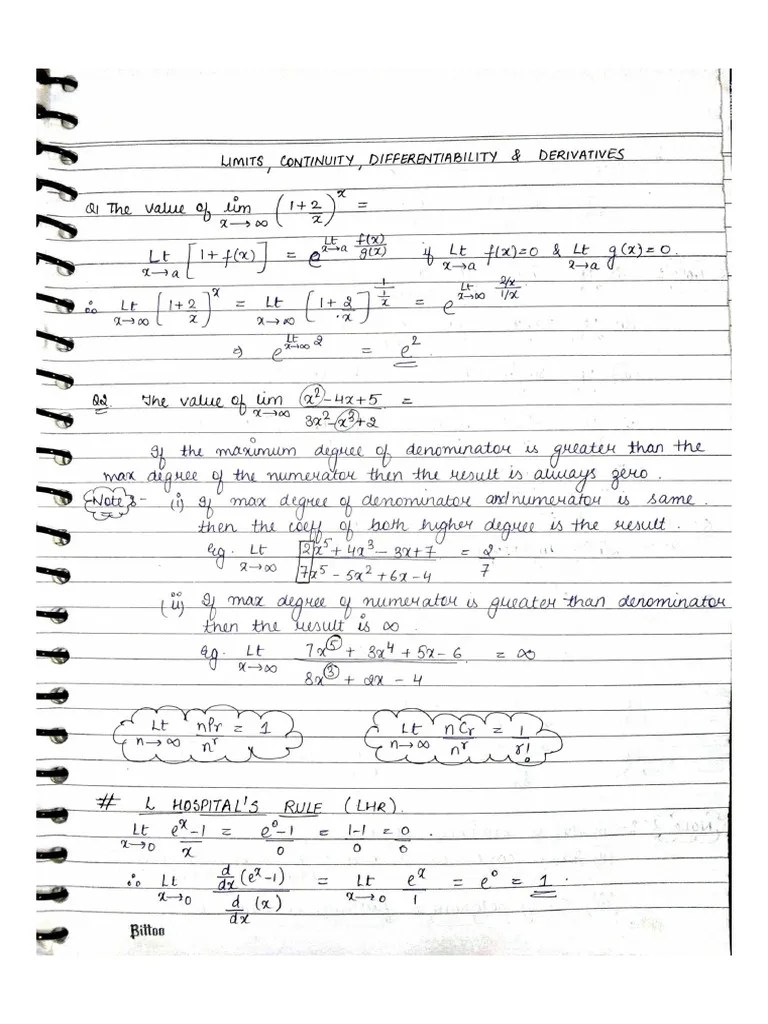 LIMITS, CONTINUITY, DIFFERENTIABILITY & DERIVATIVES
Q1 The value of lim x→∞ (1+2/x)^x =
Lt x→a [1+f(x)] = e^(Lt x→a f(x)/g(x)) if Lt x→a f(x)=0 & Lt x→a g(x)=0.
∴ Lt x→∞ [1+2/x]^x = Lt x→∞ [1+2/x]^(1/(1/x)) = e^(Lt x→∞ (2/x)/(1/x))
⇒ e^(Lt x→∞ 2) = e^2
Q2. The value of lim x→∞ (x^2-4x+5)/(3x^2-x^3+2) =
If the maximum degree of denominator is greater than the
max degree of the numerator then the result is always zero.
Note:- (i) If max degree of denominator and numerator is same.
then the coeff of both higher degree is the result.
eg. Lt x→∞ (2x^5+4x^3-3x+7)/(7x^5-5x^2+6x-4) = 2/7
(ii) If max degree of numerator is greater than denominator
then the result is ∞
eg. Lt x→∞ (7x^5+3x^4+5x-6)/(8x^3+2x-4) = ∞
Lt n→∞ nPr/n^r = 1
Lt n→∞ nCr/n^r = 1/r!
# L HOSPITAL'S RULE (LHR).
Lt x→0 (e^x-1)/x = (e^0-1)/0 = (1-1)/0 = 0/0.
∴ Lt x→0 (d/dx (e^x-1))/(d/dx (x)) = Lt x→0 e^x/1 = e^0 = 1.
Bittoo